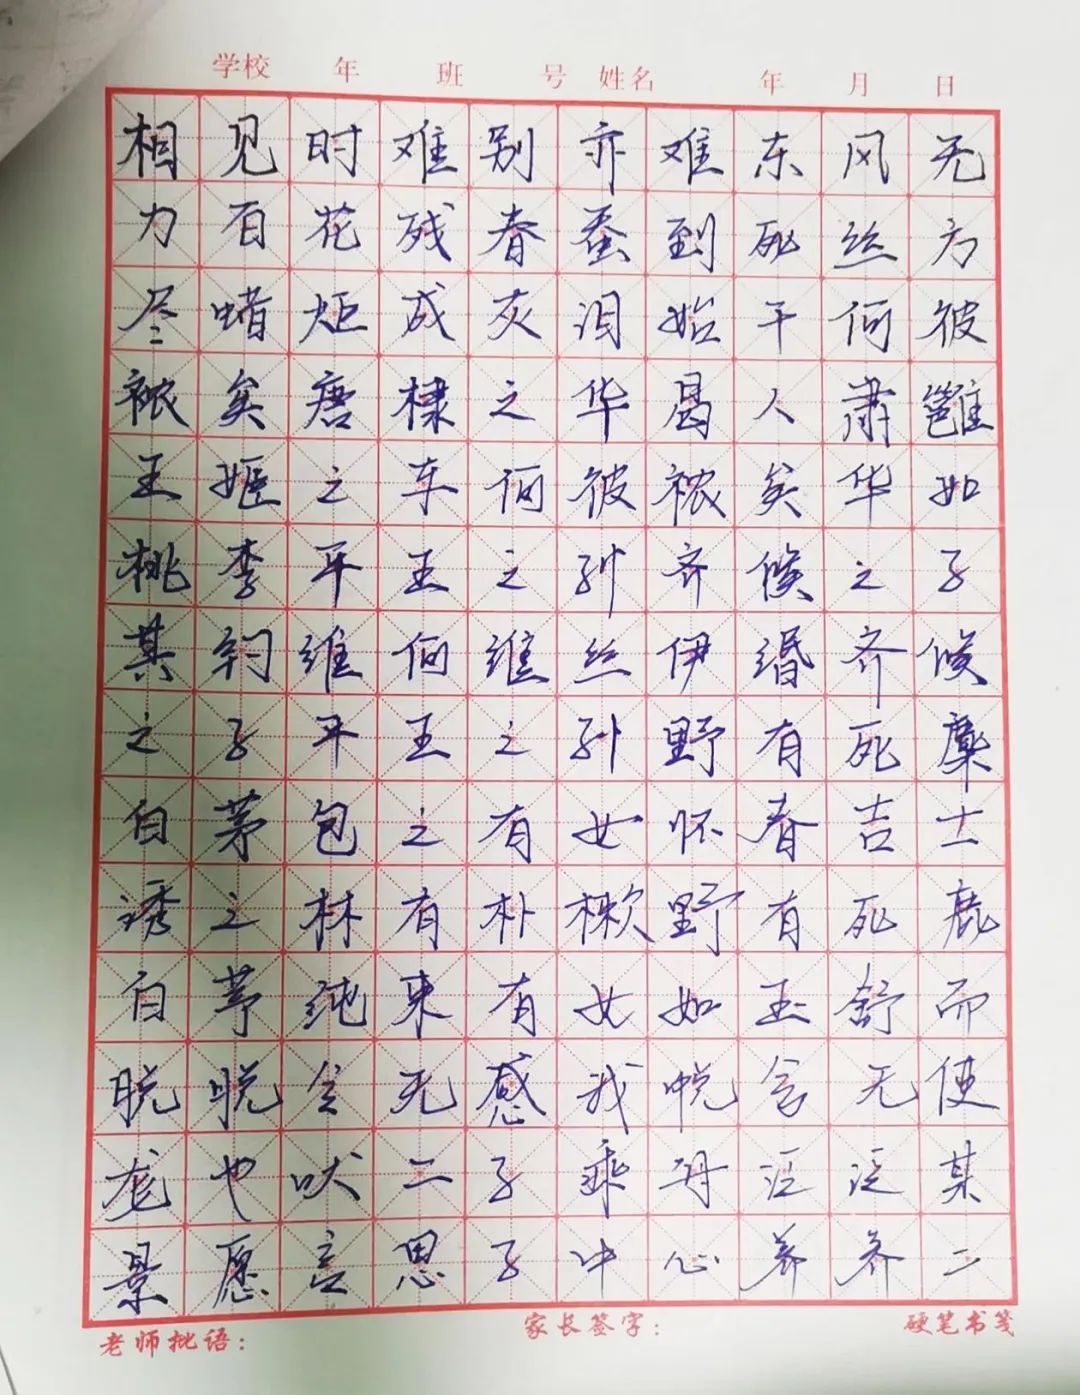 学校 年 班 号 姓名 年 月 日
相见时难别亦难东风无
力百花残春蚕到死丝方
尽蜡炬成灰泪始干何彼
秾矣唐棣之华曷人肃雝
王姬之车何彼秾矣华如
桃李平王之孙齐候之子
其钓维何维丝伊缗齐候
之子平王之孙野有死麇
白茅包之有女怀春吉士
诱之林有朴樕野有死鹿
白茅纯束有女如玉舒而
脱脱兮无感我帨兮无使
尨也吠二子乘舟泛泛其
景愿言思子中心养养二
老师批语： 家长签字： 硬笔书笺